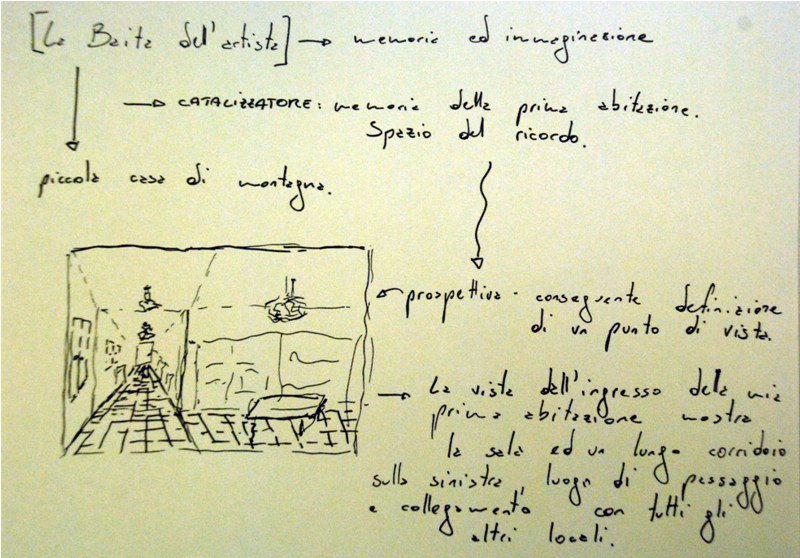 [La Baita dell'artista] → memoria ed immaginazione
→ CATALIZZATORE: memoria della prima abitazione.
Spazio del ricordo.
piccola casa di montagna.
prospettiva - conseguente definizione
di un punto di vista.
→ La vista dall'ingresso della mia
prima abitazione mostra
la sala ed un lungo corridoio
sulla sinistra, luogo di passaggio
e collegamento con tutti gli
altri locali.